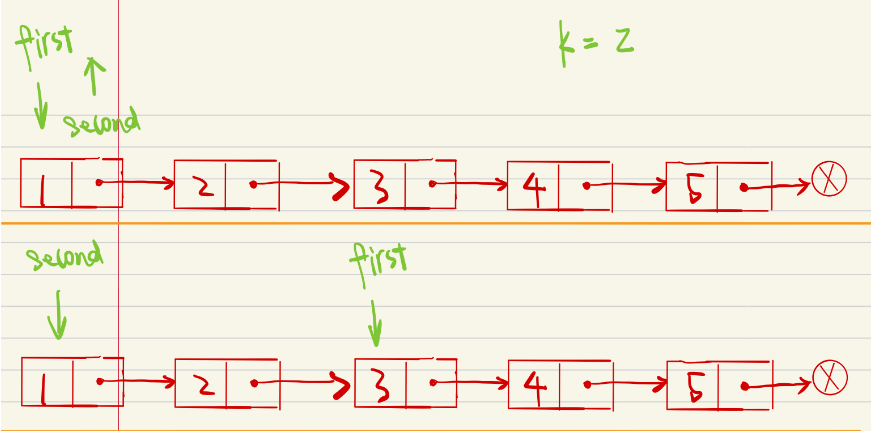 first
k = 2
second
1 2 3 4 5
second
first
1 2 3 4 5